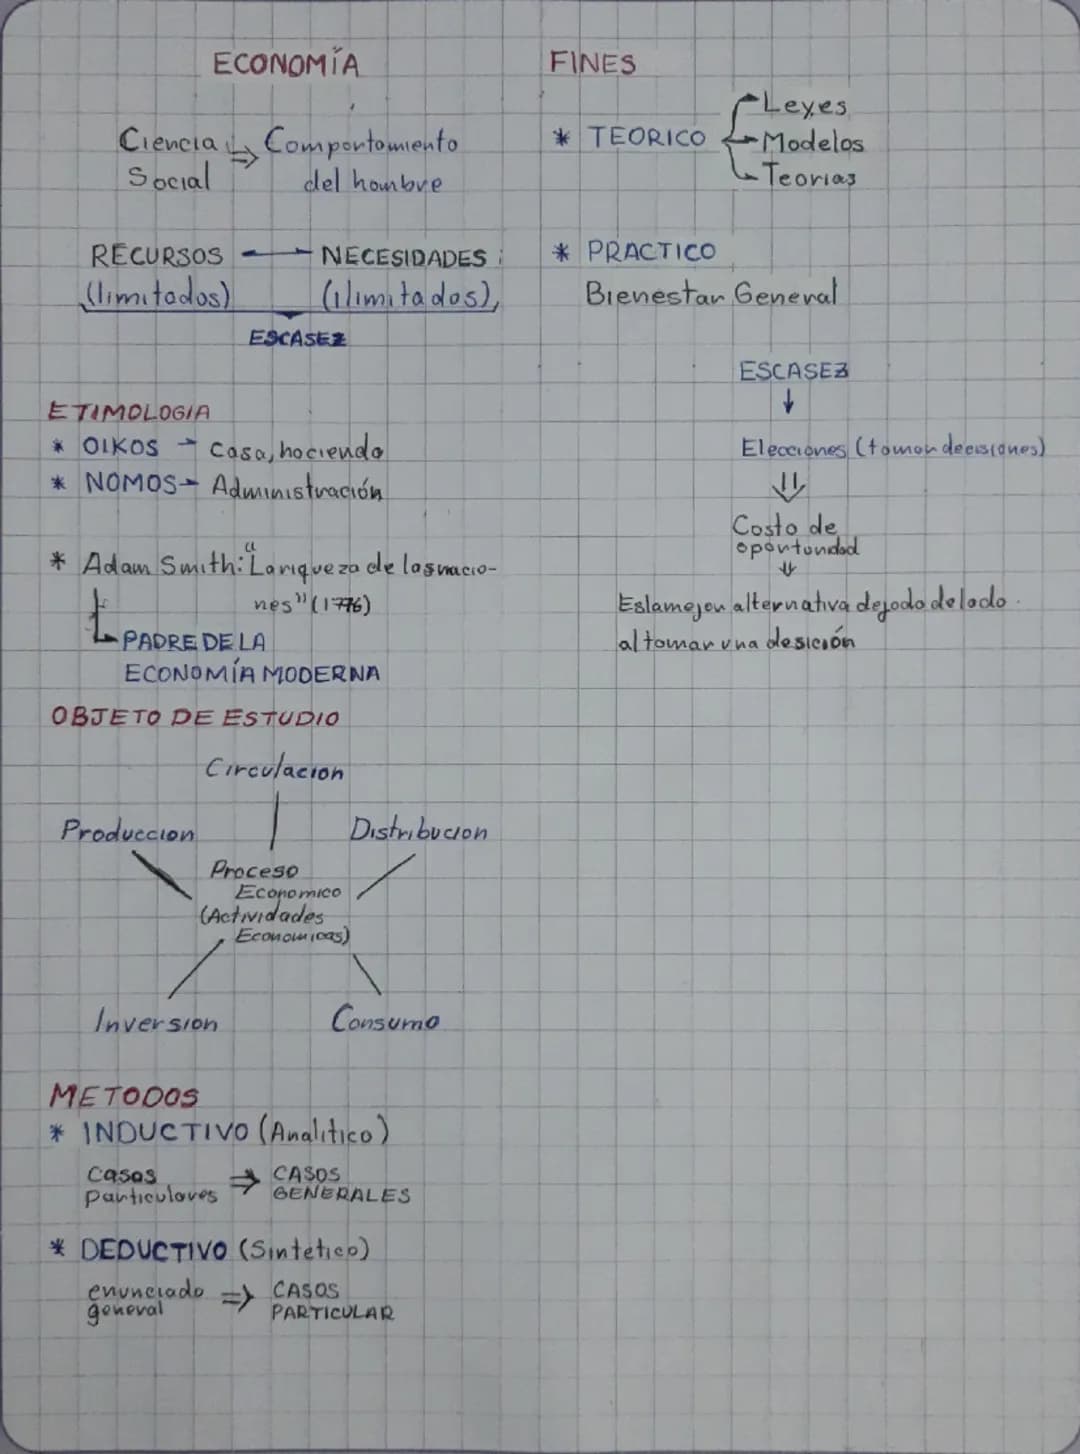 ECONOMÍA
Ciencia ⇒ Comportamiento
Social del hombre
RECURSOS → NECESIDADES
(limitados) (ilimitados)
ESCASEZ
ETIMOLOGIA
* OIKOS → Casa, haciendo
* NOMOS → Administración
* Adam Smith: "La riqueza de las nacio-
nes" (1776)
PADRE DE LA
ECONOMÍA MODERNA
OBJETO DE ESTUDIO
Circulacion
Produccion Distribucion
Proceso
Economico
(Actividades
Economicas)
Inversion Consumo
METODOS
* INDUCTIVO (Analitico)
Casos ⇒ CASOS
particulares GENERALES
* DEDUCTIVO (Sintetico)
enunciado ⇒ CASOS
general PARTICULAR
FINES
Leyes
* TEORICO Modelos
Teorias
* PRACTICO
Bienestar General
ESCASEZ
↓
Elecciones (tomar decisiones)
⇓
Costo de
oportunidad
⇓
Es la mejor alternativa dejado de lado
al tomar una desición